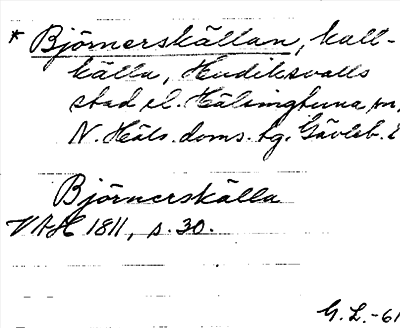 * Björnerskällan, kall-
källa, Hudiksvalls
stad el. Hälsingtuna sn,
N. Häls. doms. tg. Gävleb. l
Björnerskälla
VAH 1811, s. 30.
G. L. -61